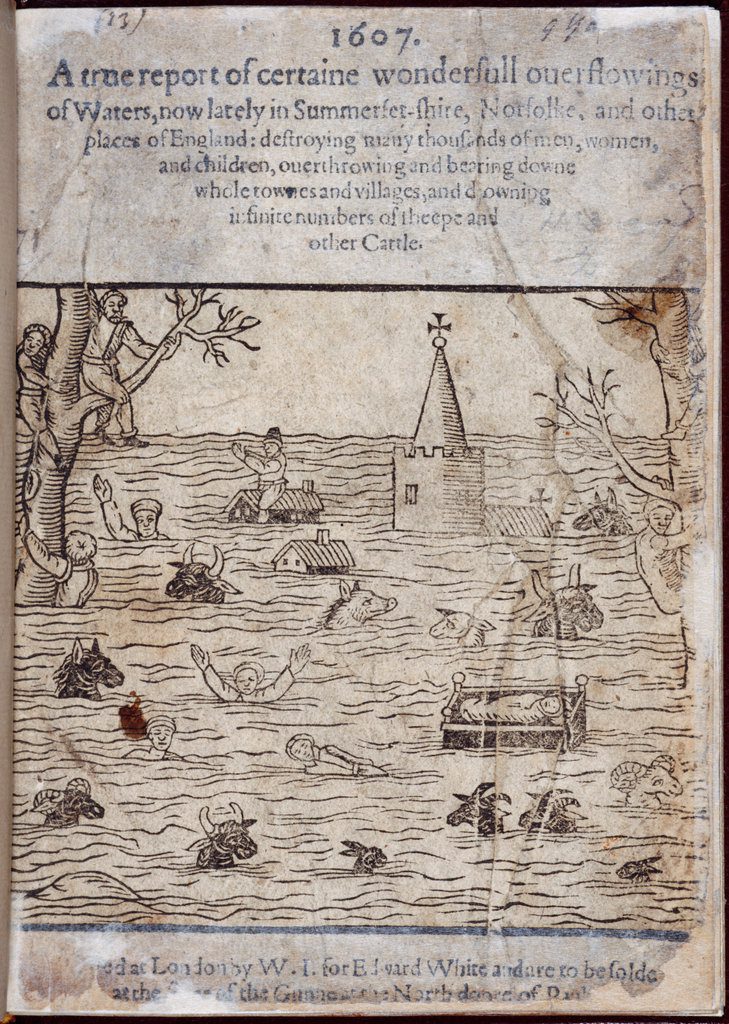 (33)
1607.
A true report of certaine wonderfull ouerflowings
of Waters, now lately in Summerset-shire, Norfolke, and other
places of England: destroying many thousands of men, women,
and children, ouerthrowing and bearing downe
whole townes and villages, and drowning
infinite numbers of sheepe and
other Cattle.
at London by W. I. for Edward White and are to be solde
at the of the Gunne at the North doore of